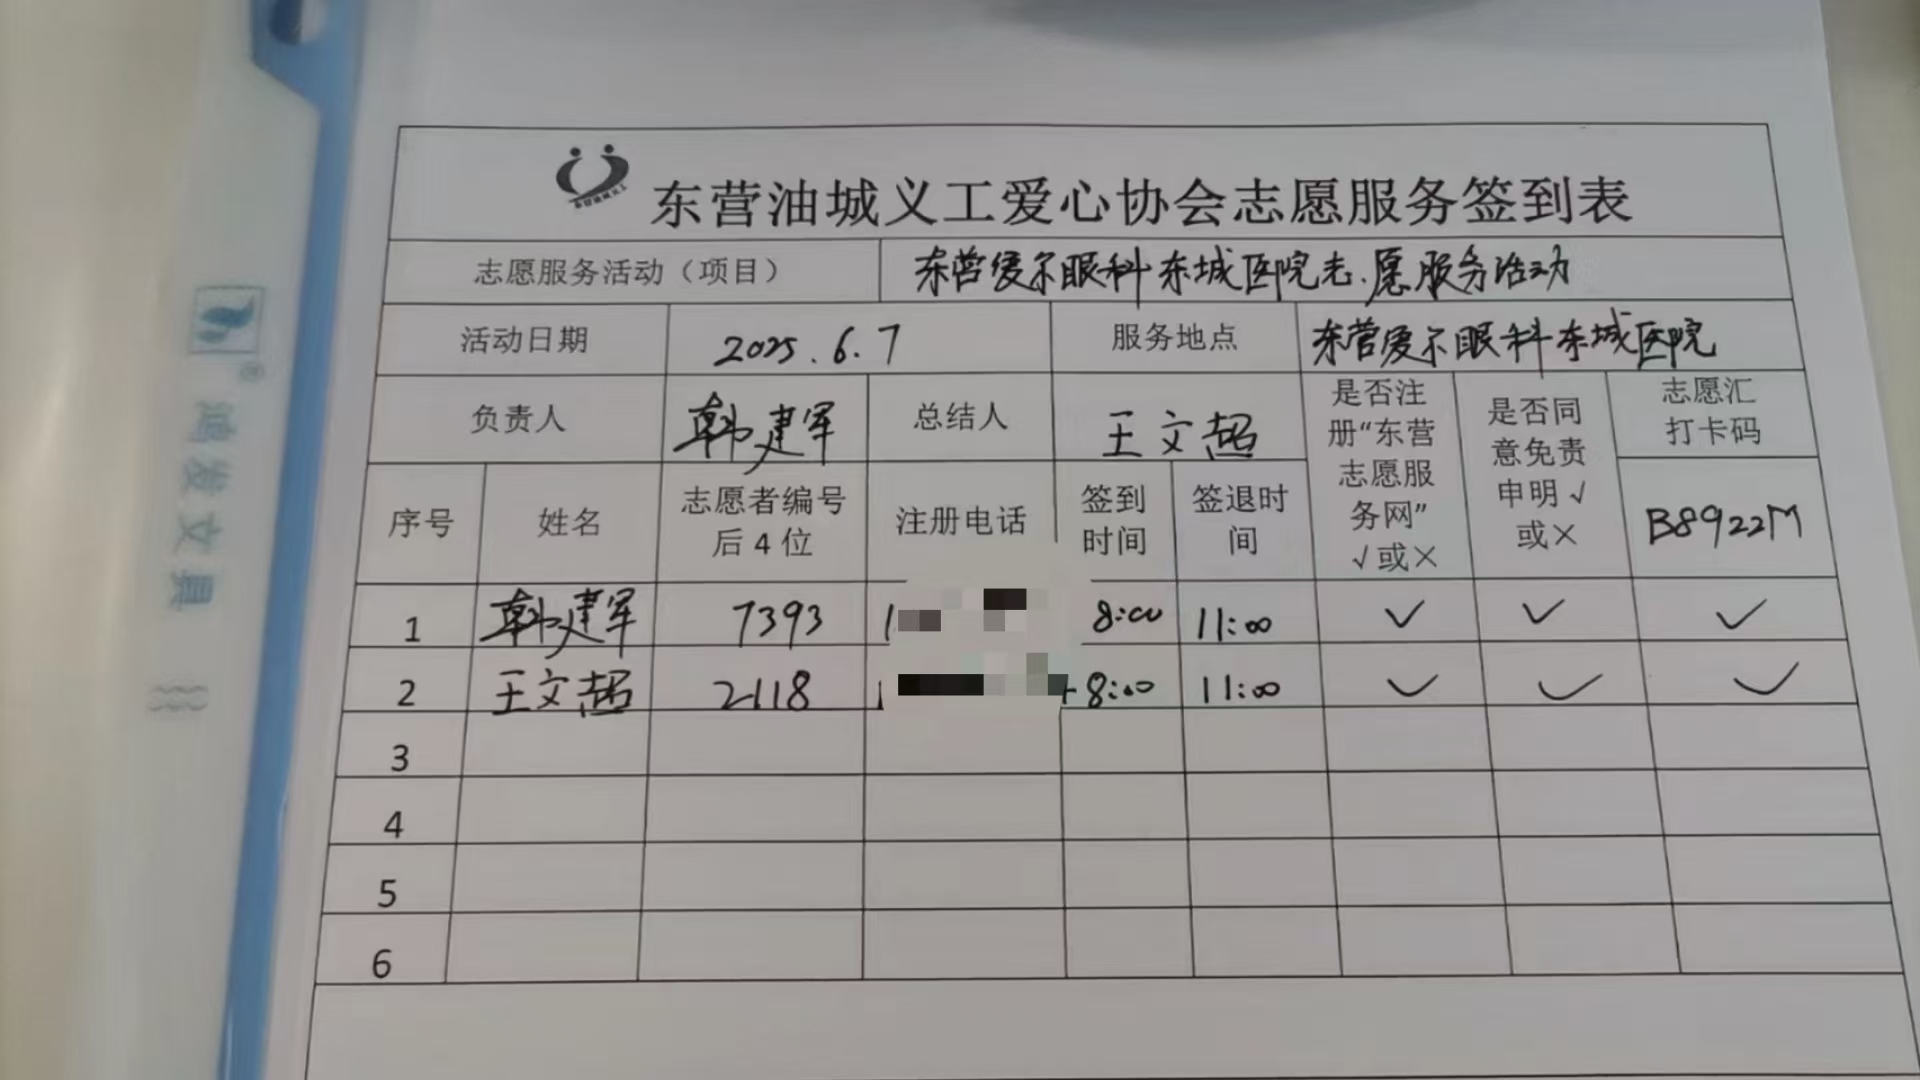 东营油城义工爱心协会志愿服务签到表
志愿服务活动（项目） 东营爱尔眼科东城医院志愿服务活动
活动日期 2025.6.7 服务地点 东营爱尔眼科东城医院
负责人 韩建军 总结人 王文超 是否注册“东营志愿服务网”√或× 是否同意免责申明√或× 志愿汇打卡码
序号 姓名 志愿者编号后4位 注册电话 签到时间 签退时间 B8922M
1 韩建军 7393 1 8:00 11:00 ✓ ✓ ✓
2 王文超 2118 1 8:00 11:00 ✓ ✓ ✓
3
4
5
6
鸿发文具